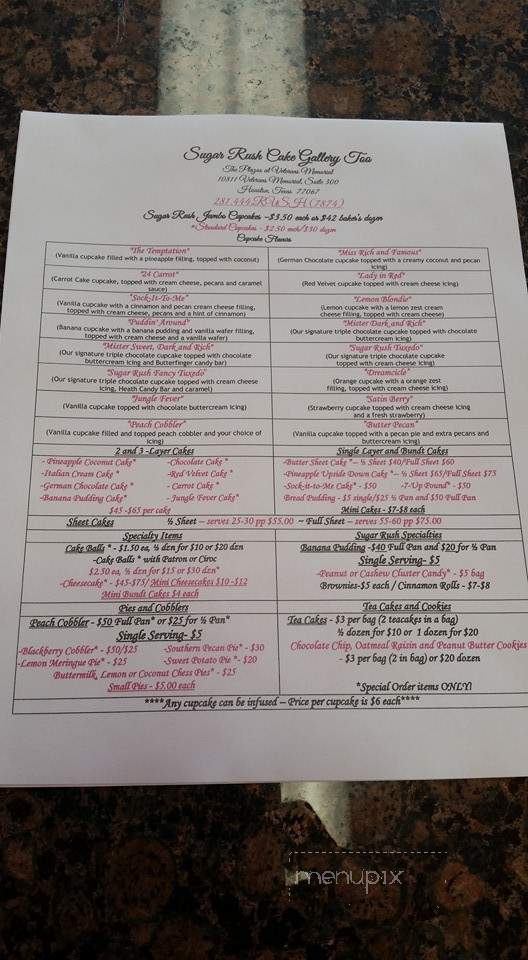 Sugar Rush Cake Gallery Too
The Plazas at Veterans Memorial
10811 Veterans Memorial, Suite 300
Houston, Texas 77067
281.444.RUSH (7874)
Sugar Rush Jumbo Cupcakes ~$3.50 each or $42 baker's dozen
*Standard Cupcakes - $2.50 each/$30 dozen
Cupcake Flavors
"The Temptation"
(Vanilla cupcake filled with a pineapple filling, topped with coconut)
"Miss Rich and Famous"
(German Chocolate cupcake topped with a creamy coconut and pecan
icing)
"24 Carrot"
(Carrot Cake cupcake, topped with cream cheese, pecans and caramel
sauce)
"Lady in Red"
(Red Velvet cupcake topped with cream cheese icing)
"Sock-It-To-Me"
(Vanilla cupcake with a cinnamon and pecan cream cheese filling,
topped with cream cheese, pecans and a hint of cinnamon)
"Lemon Blondie"
(Lemon cupcake with a lemon zest cream
cheese filling, topped with cream cheese)
"Puddin' Around"
(Banana cupcake with a banana pudding and vanilla wafer filling,
topped with cream cheese and a vanilla wafer)
"Mister Dark and Rich"
(Our signature triple chocolate cupcake topped with chocolate
buttercream icing)
"Mister Sweet, Dark and Rich"
(Our signature triple chocolate cupcake topped with chocolate
buttercream icing and Butterfinger candy bar)
"Sugar Rush Tuxedo"
(Our signature triple chocolate cupcake
topped with cream cheese icing)
"Sugar Rush Fancy Tuxedo"
(Our signature triple chocolate cupcake topped with cream cheese
icing, Heath Candy Bar and caramel)
"Dreamcicle"
(Orange cupcake with a orange zest
filling, topped with cream cheese icing)
"Jungle Fever"
(Vanilla cupcake topped with chocolate buttercream icing)
"Satin Berry"
(Strawberry cupcake topped with cream cheese icing
and a fresh strawberry)
"Peach Cobbler"
(Vanilla cupcake filled and topped peach cobbler and your choice of
icing)
"Butter Pecan"
(Vanilla cupcake topped with a pecan pie and extra pecans and
buttercream icing)
2 and 3 -Layer Cakes
- Pineapple Coconut Cake* -Chocolate Cake *
-Italian Cream Cake * -Red Velvet Cake *
-German Chocolate Cake * - Carrot Cake *
-Banana Pudding Cake* - Jungle Fever Cake*
$45 -$65 per cake
Single Layer and Bundt Cakes
-Butter Sheet Cake *~ ½ Sheet $40/Full Sheet $60
-Pineapple Upside Down Cake *~ ½ Sheet $65/Full Sheet $75
-Sock-it-to-Me Cake* - $50 -7-Up Pound* - $50
Bread Pudding - $5 single/$25 ½ Pan and $50 Full Pan
Mini Cakes - $7-$8 each
Sheet Cakes ½ Sheet – serves 25-30 pp $55.00 ~ Full Sheet – serves 55-60 pp $75.00
Specialty Items
Cake Balls * - $1.50 ea, ½ dzn for $10 or $20 dzn
-Cake Balls * with Patron or Ciroc
$2.50 ea, ½ dzn for $15 or $30 dzn*
-Cheesecake* -$45-$75/ Mini Cheesecakes $10 -$12
Mini Bundt Cakes $4 each
Sugar Rush Specialties
Banana Pudding -$40 Full Pan and $20 for ½ Pan
Single Serving- $5
-Peanut or Cashew Cluster Candy* - $5 bag
Brownies-$5 each / Cinnamon Rolls - $7-$8
Pies and Cobblers
Peach Cobbler - $50 Full Pan* or $25 for ½ Pan*
Single Serving- $5
-Blackberry Cobbler* - $50/$25 -Southern Pecan Pie* - $30
-Lemon Meringue Pie* - $25 -Sweet Potato Pie *- $20
Buttermilk, Lemon or Coconut Chess Pies* - $25
Small Pies - $5.00 each
Tea Cakes and Cookies
Tea Cakes - $3 per bag (2 teacakes in a bag)
½ dozen for $10 or 1 dozen for $20
Chocolate Chip, Oatmeal Raisin and Peanut Butter Cookies
- $3 per bag (2 in bag) or $20 dozen
*Special Order items ONLY!
****Any cupcake can be infused – Price per cupcake is $6 each****
menupix